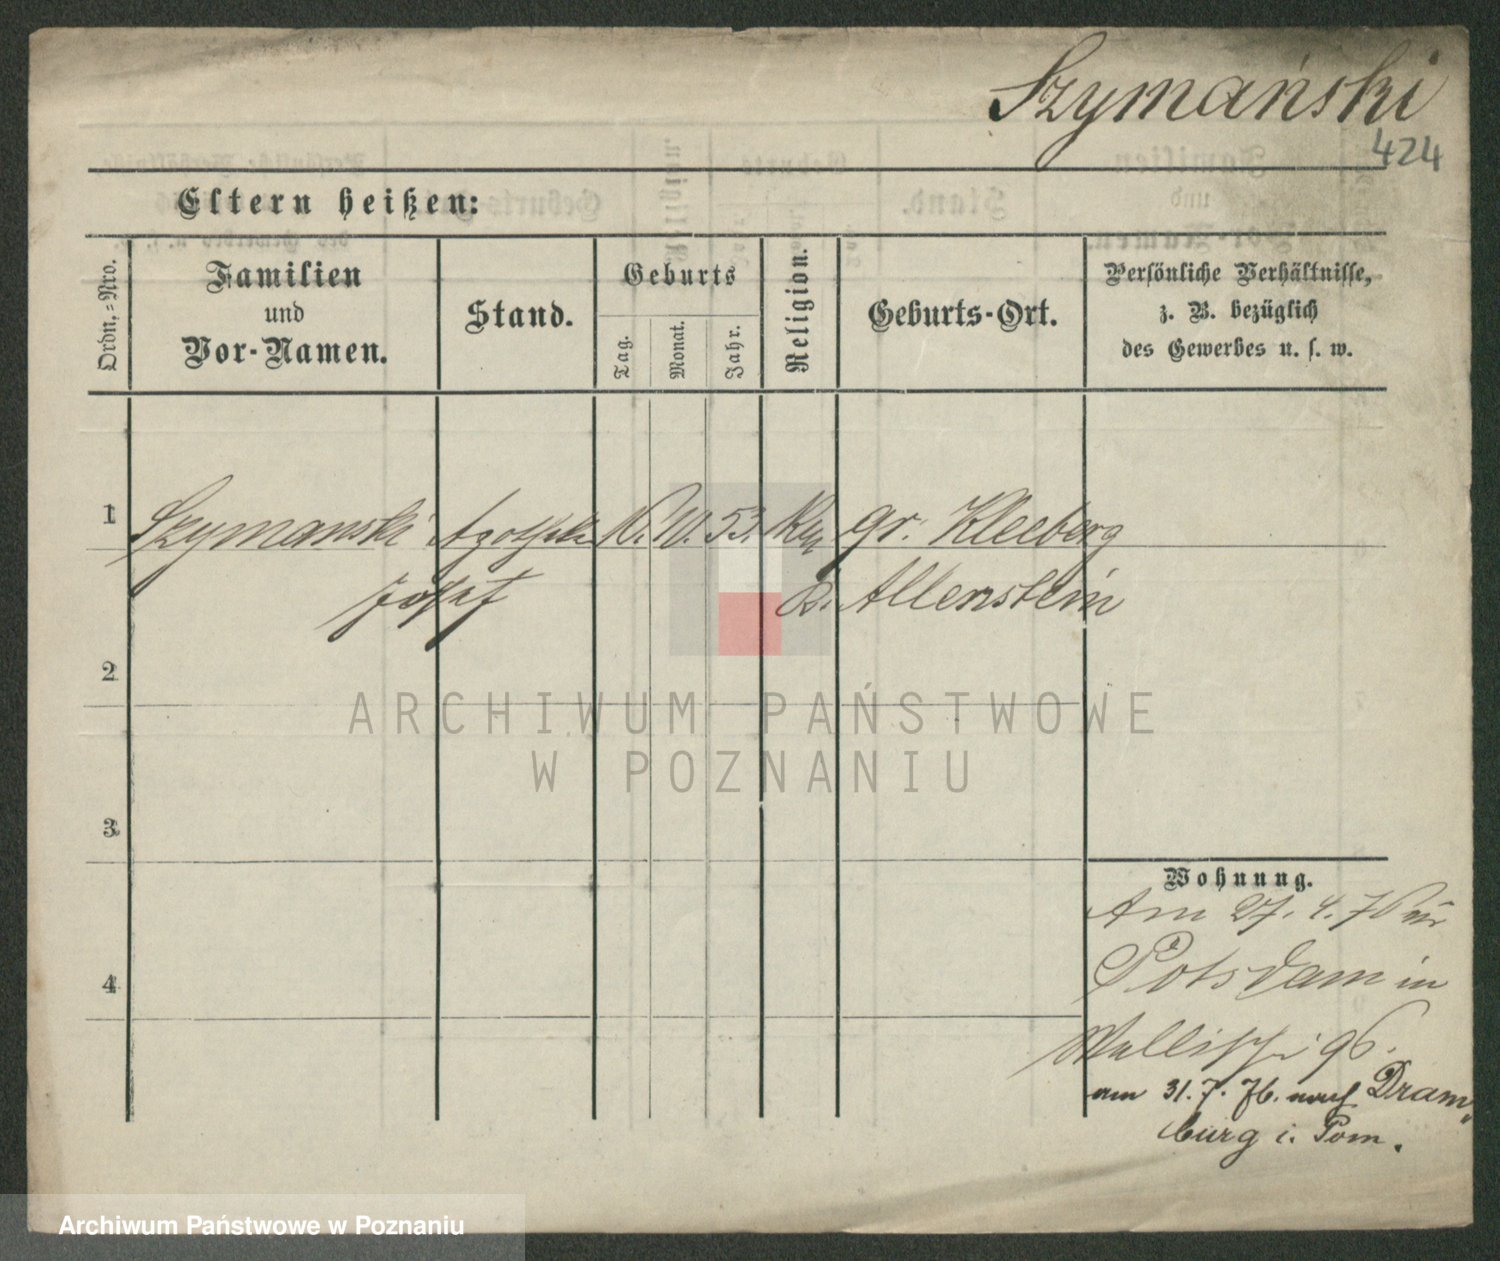 Szymański
424
Eltern heißen:
Ordn.-Nro.
Familien
und
Vor-Namen.
Stand.
Geburts
Tag.
Monat.
Jahr.
Religion.
Geburts-Ort.
Persönliche Verhältnisse,
z. B. bezüglich
des Gewerbes u. s. w.
1
Szymanski
53.
gr. Kleeberg
Josef
Allenstein
2
3
4
Wohnung.
Am 27. 4. 76
Potsdam in
Wallischei 96.
am 31. 7. 76. nach Dram„
burg i. Pom.
ARCHIWUM PAŃSTWOWE
W POZNANIU
Archiwum Państwowe w Poznaniu